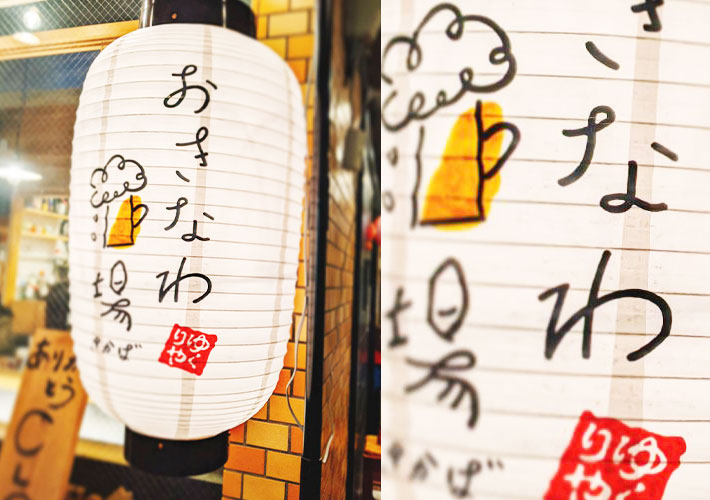 おきなわ
場
さかば
ゆく
りや
ありが
とう
なわ
場
かば
ゆく
りや